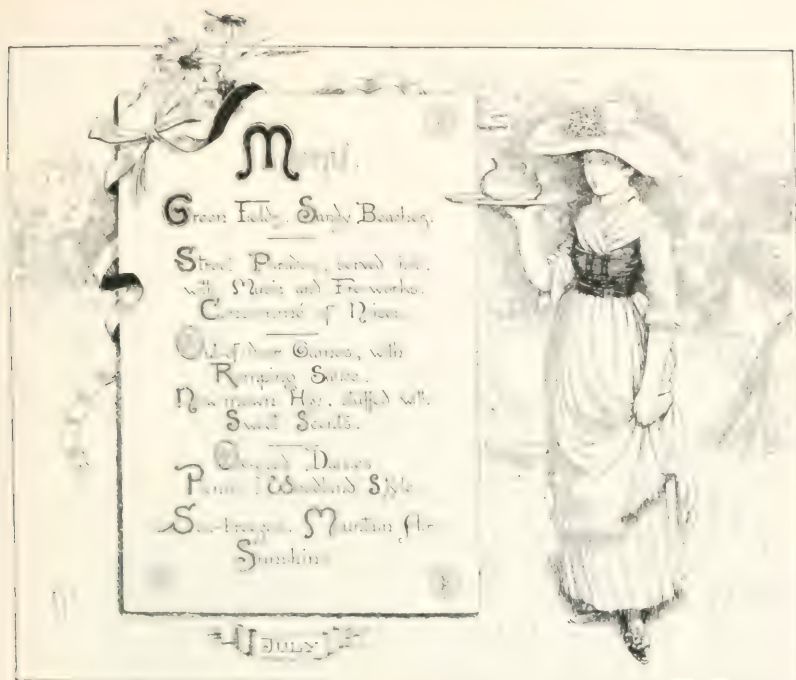 Menu.
Green Fields. Sandy Beaches.
Street Parades, served hot,
with Music and Fireworks.
Consommé of Noise
Out-of-door Games, with
Romping Sauce.
New mown Hay, stuffed with
Sweet Scents.
Daisies
Picnic Woodland Style
Sea-breezes. Mountain Air
Sunshine
JULY